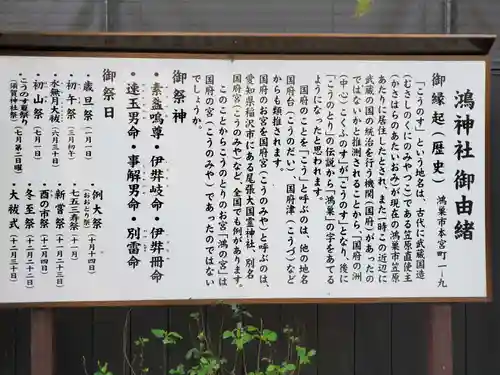 鴻神社御由緒
鴻巣市本宮町一ノ九
御縁起(歴史)
「こうのす」という地名は、古代に武蔵国造
(むさしのくにのみやつこ)である笠原直使主
(かさはらのあたいおみ)が現在の鴻巣市笠原
あたりに居住したとされ、また一時この近辺に
武蔵の国の統治を行う機関(国府)があったの
ではないかと推測されることから、「国府の洲
(中心)こくふのす」が「こうのす」となり、後に
「こうのとり」の伝説から「鴻巣」の字をあてる
ようになったと思われます。
国府のことを「こう」と呼ぶのは、他の地名
国府台(こうのだい)、国府津(こうづ)など
からも類推されます。
国府のお宮を国府宮(こうのみや)と呼ぶのは、
愛知県稲沢市にある尾張大国霊神社、別名
国府宮(こうのみや)など、全国でも例があります。
このことからこうのとりのお宮「鴻の宮」は
国府の宮(こうのみや)であったのではない
でしょうか。
御祭神
・素盞嗚尊・伊弉岐命・伊弉冊命
・速玉男命・事解男命・別雷命
御祭日
・歳旦祭(一月一日)
・初午祭(三月四午)
・水無月大祓(六月三十日)
・初山祭(七月一日)
・こうのす夏祭り(七月第二日曜)
(須賀神社祭)
・例大祭(十月十四日)
(おおとり祭)
・七五三寿祭(十一月)
・新嘗祭(十一月二十三日)
・酉の市祭(十二月四日)
・冬至祭(十二月二十二日)
・大祓式(十二月三十日)